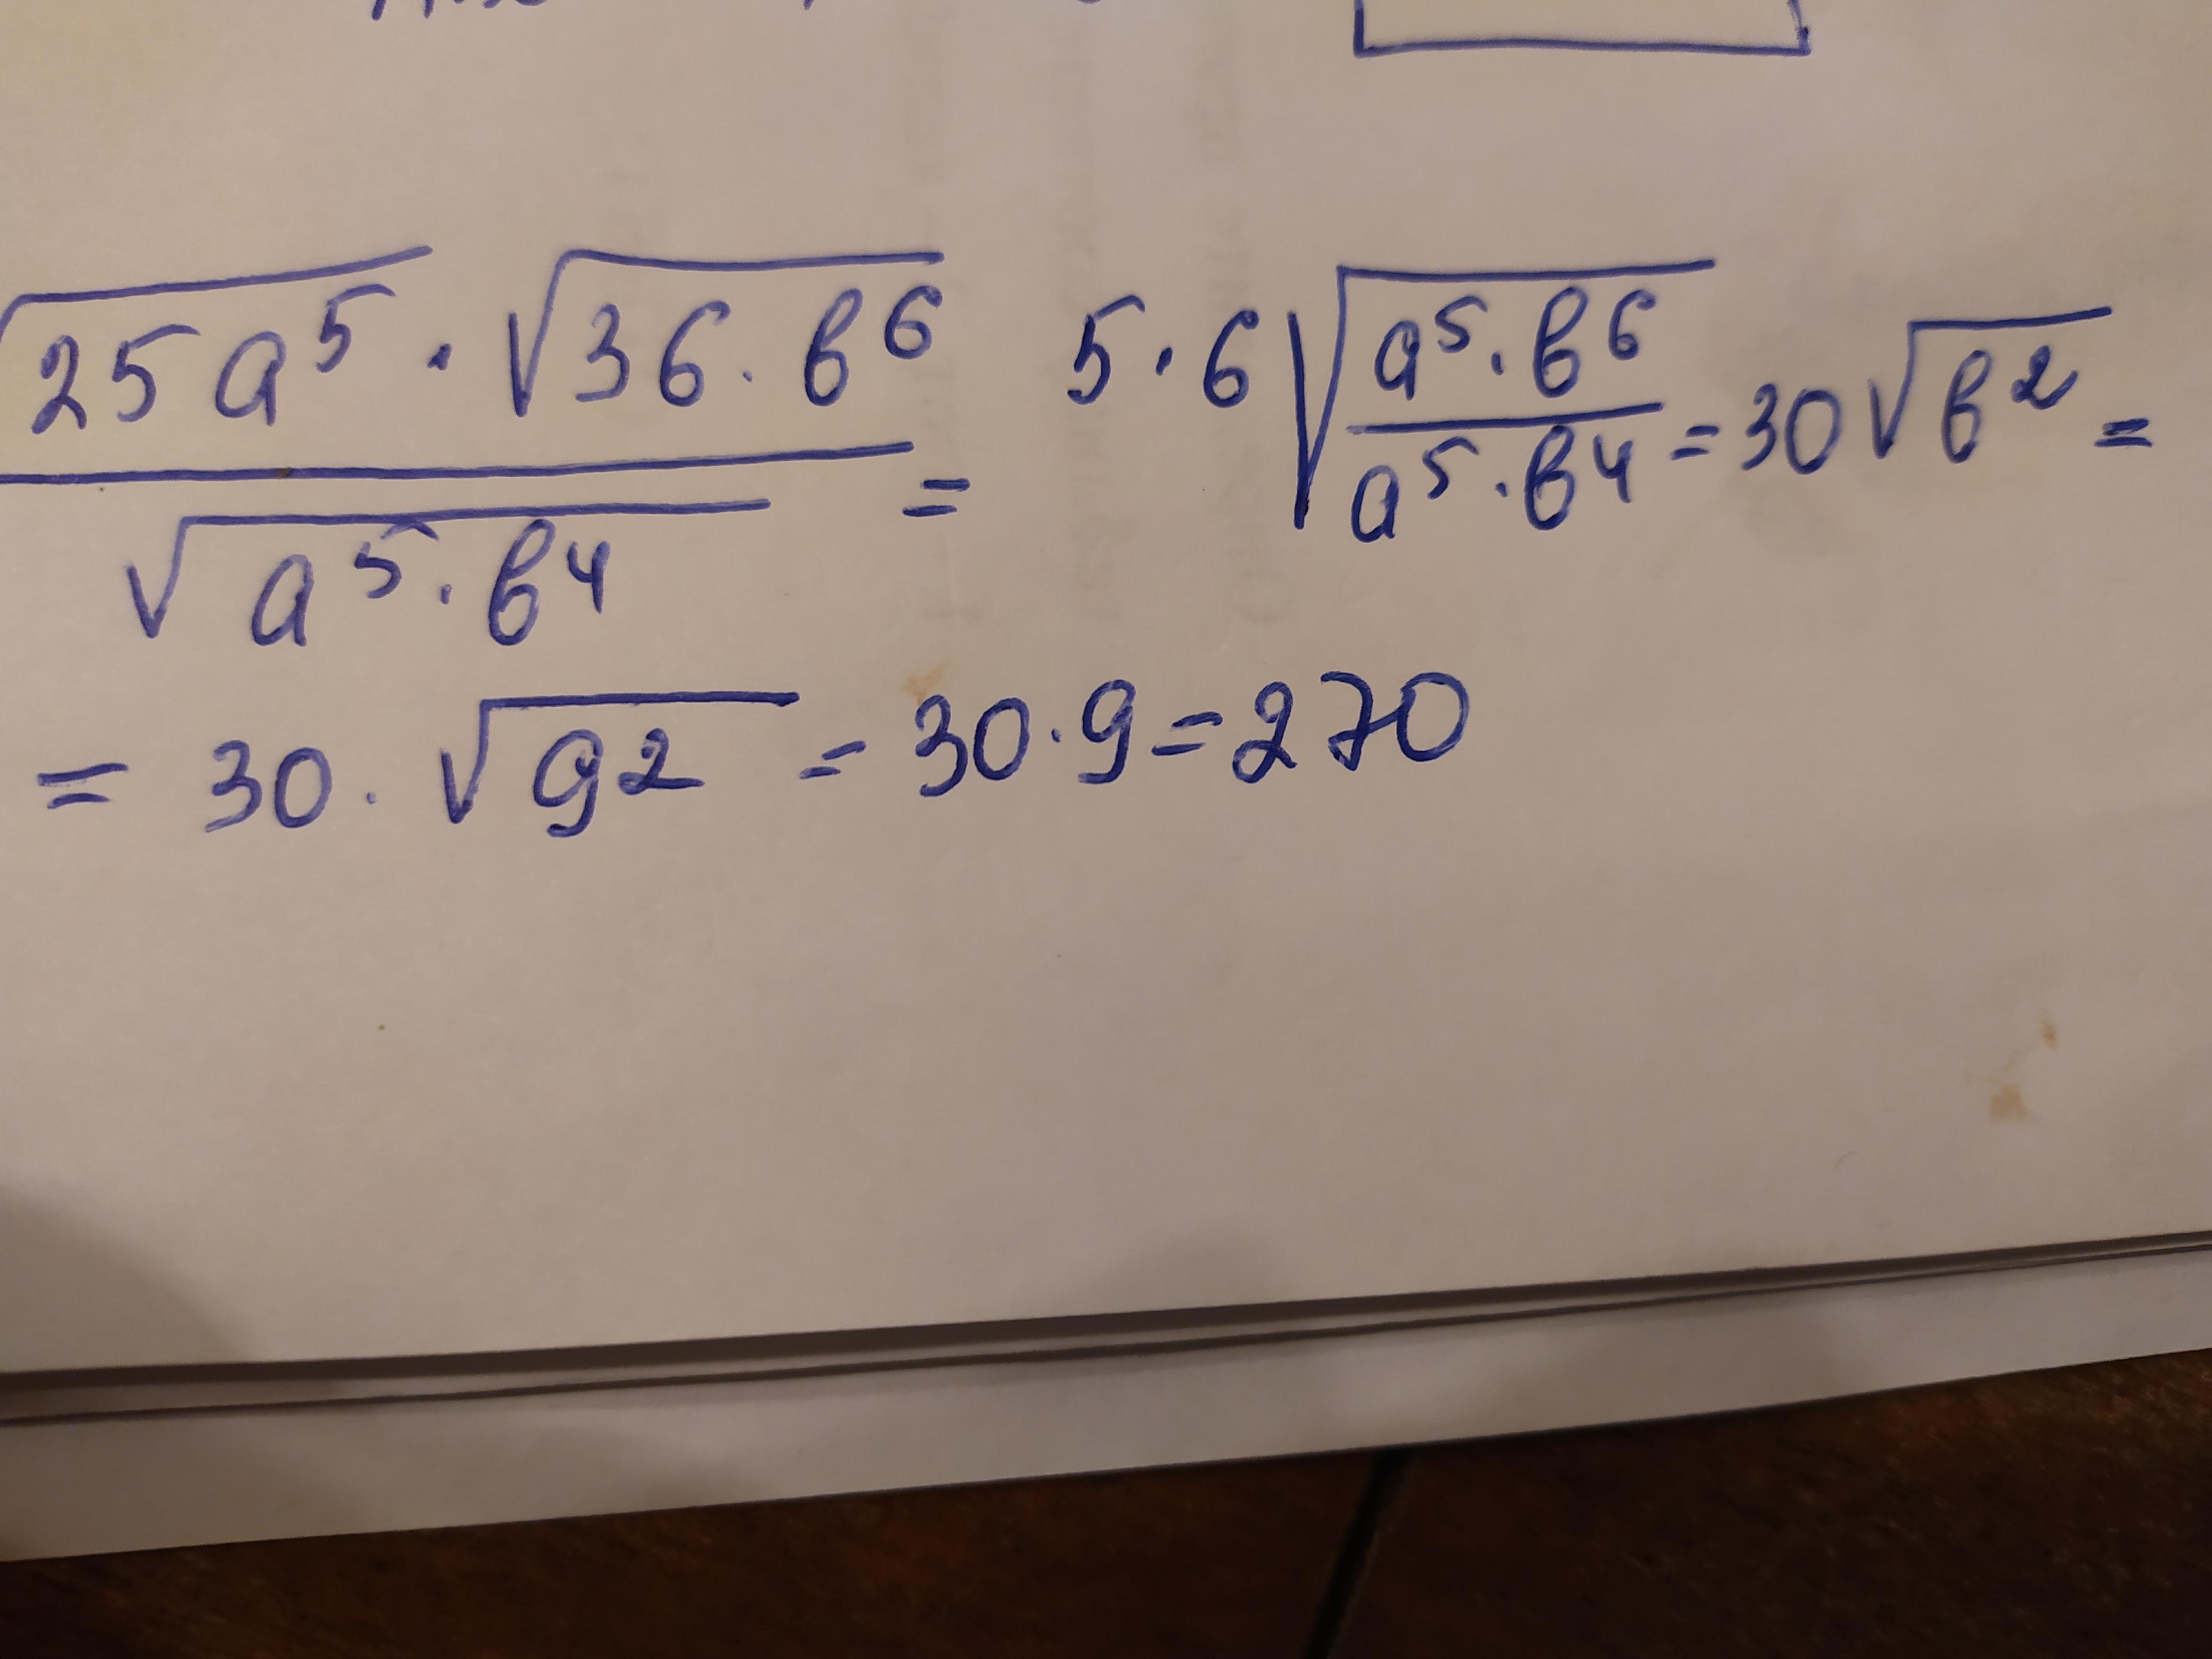 √25a⁵ · √36·в⁶ / √a⁵·в⁴ = 5·6 √a⁵·в⁶ / a⁵·в⁴ = 30√в² =
= 30·√9² = 30·9=270